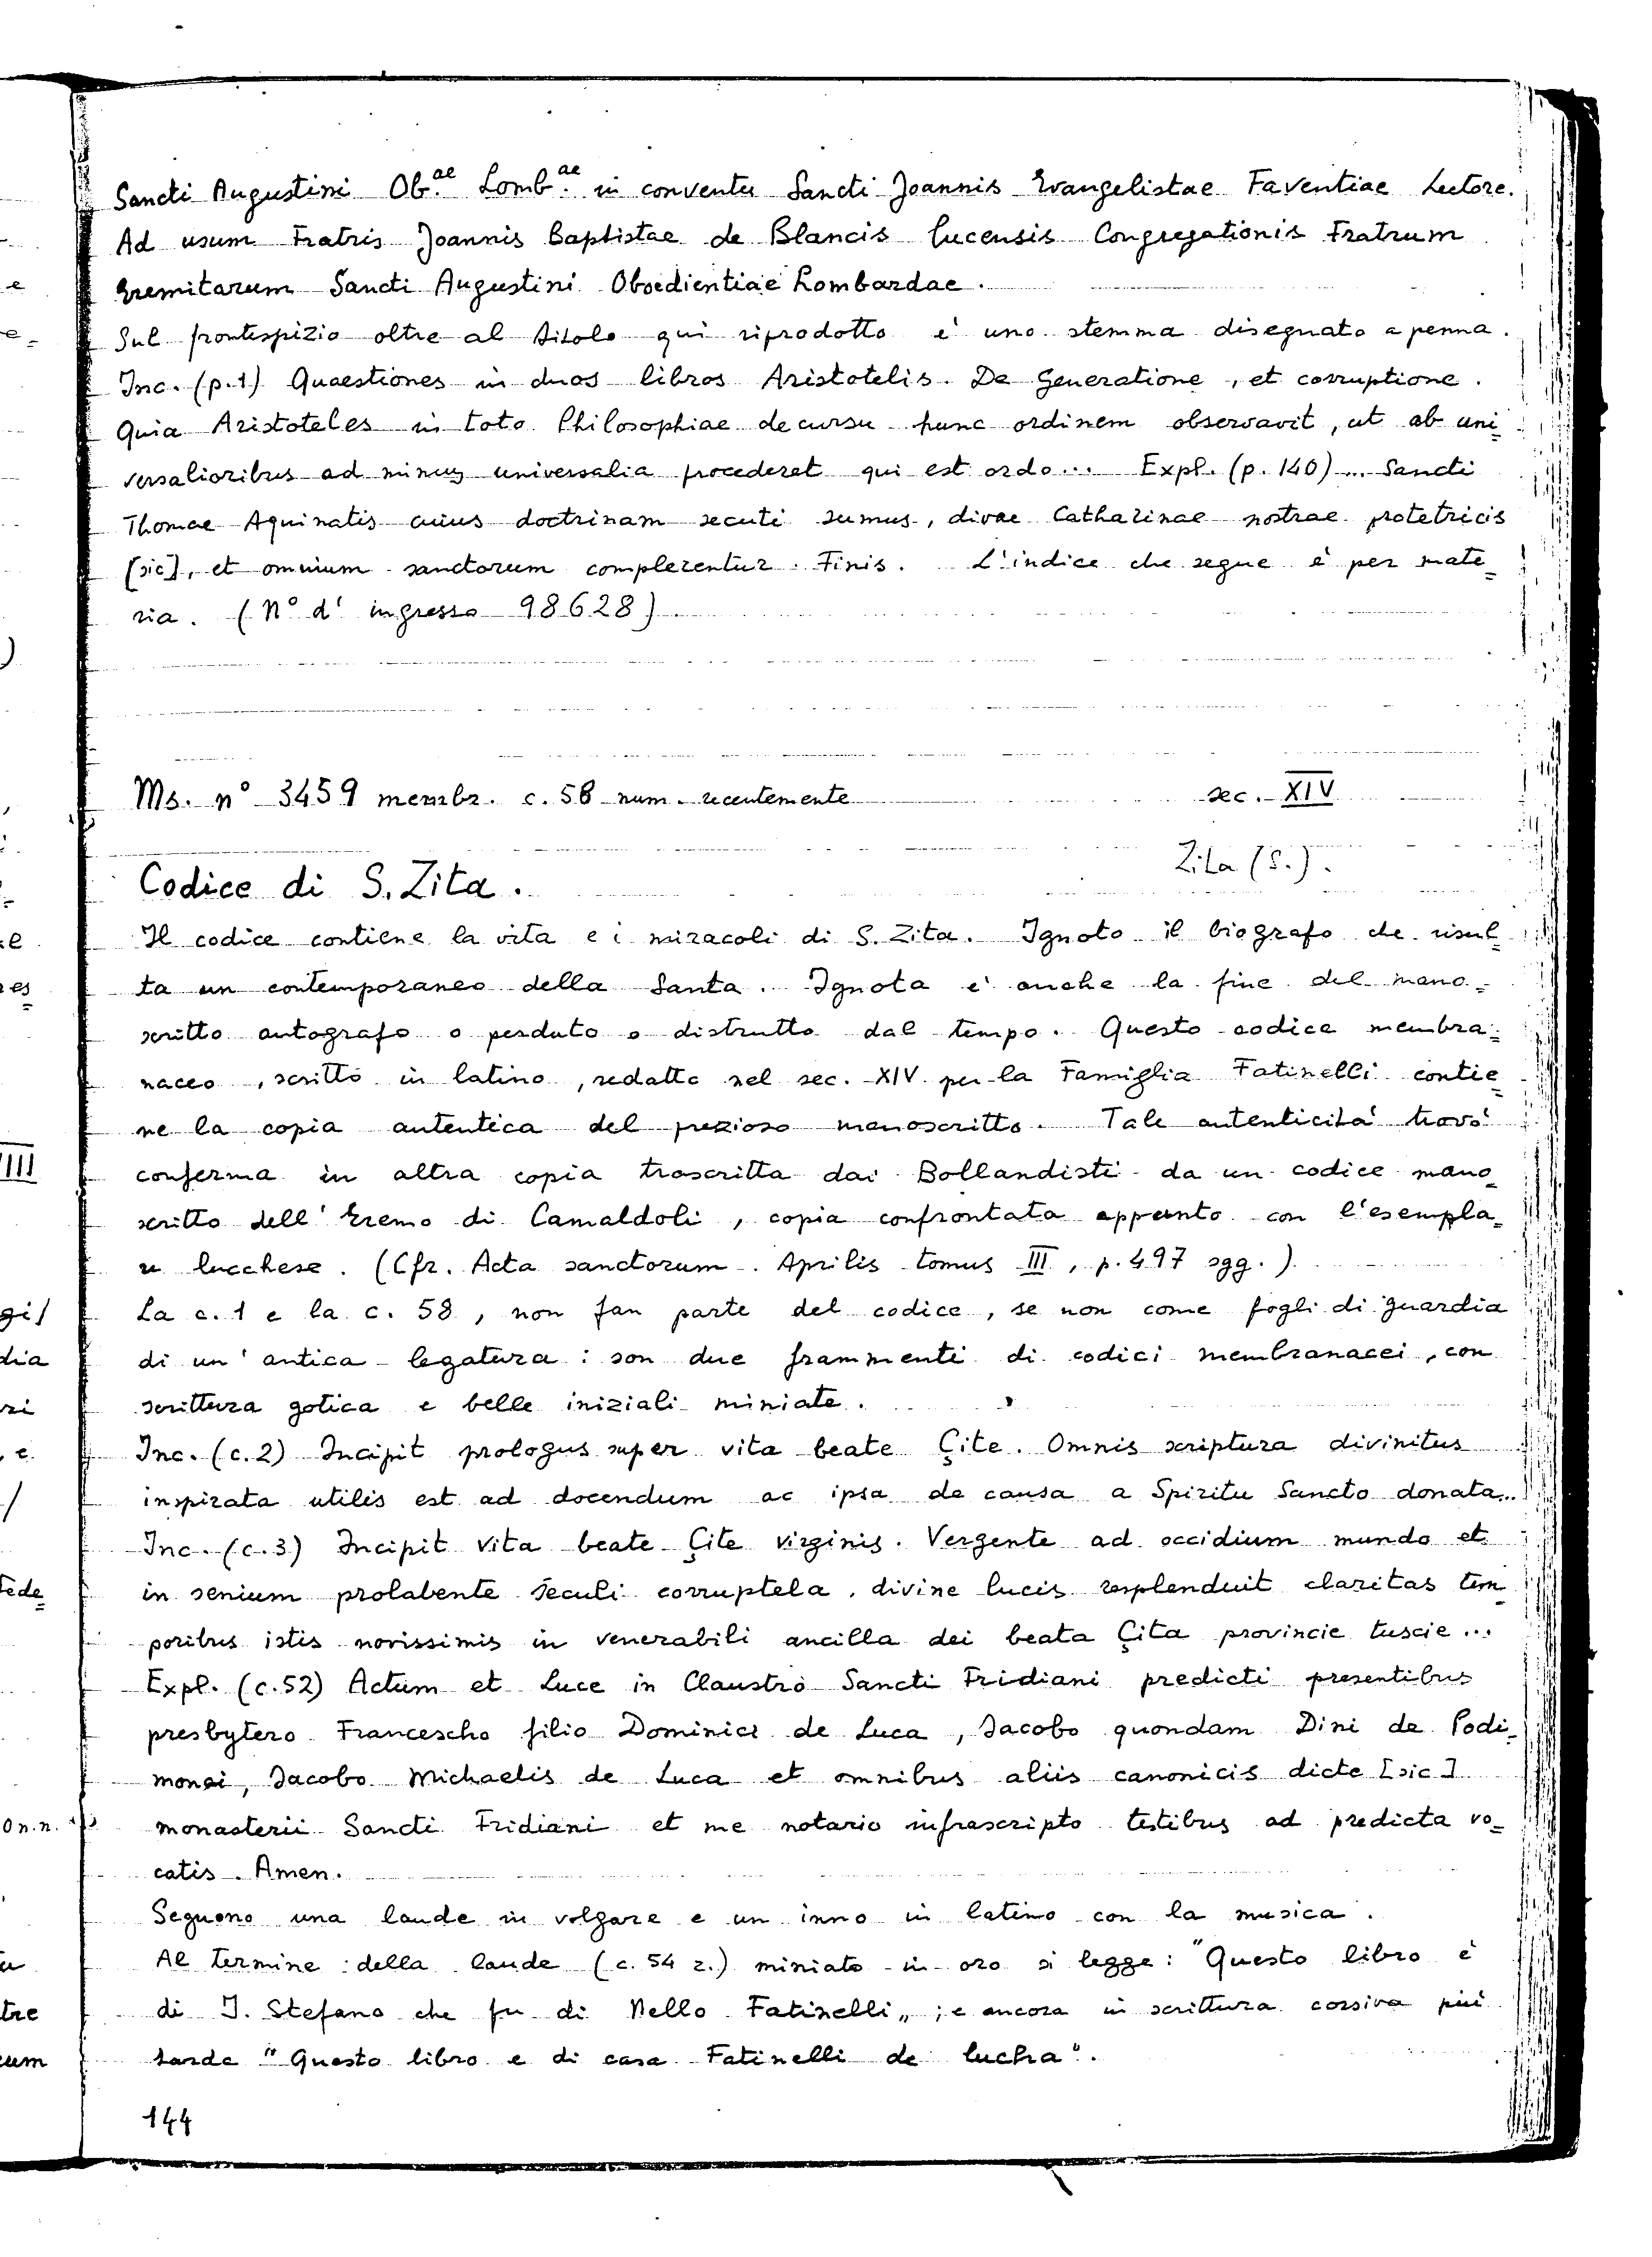 Sancti Augustini Ob.ae Lomb.ae in conventu Sancti Joannis Evangelistae Faventiae Lectore.
Ad usum Fratris Joannis Baptistae de Blancis lucensis Congregationis Fratrum
Eremitarum Sancti Augustini Oboedientiae Lombardae.
Sul frontespizio oltre al titolo qui riprodotto è uno stemma disegnato a penna.
Inc. (p. 1) Quaestiones in duos libros Aristotelis. De Generatione, et corruptione.
Quia Aristoteles in toto Philosophiae decursu hunc ordinem observavit, ut ab uni=
versalioribus ad minus universalia procederet qui est ordo... Expl. (p. 140) ... Sancti
Thomae Aquinatis cuius doctrinam secuti sumus, divae Catharinae nostrae protetricis
[sic], et omnium sanctorum complerentur. Finis. L'indice che segue è per mate=
ria. (N° d' ingresso 98628)
Ms. n° 3459 membr. c. 58 num. recentemente sec. XIV
Zita (S.).
Codice di S. Zita.
Il codice contiene la vita e i miracoli di S. Zita. Ignoto il biografo che risul=
ta un contemporaneo della Santa. Ignota è anche la fine del mano=
scritto autografo o perduto o distrutto dal tempo. Questo codice membra=
naceo, scritto in latino, redatto nel sec. XIV per la Famiglia Fatinelli contie=
ne la copia autentica del prezioso manoscritto. Tale autenticità trovò
conferma in altra copia trascritta dai Bollandisti da un codice mano=
scritto dell' Eremo di Camaldoli, copia confrontata appunto con l'esempla=
re lucchese. (Cfr. Acta sanctorum. Aprilis tomus III, p. 497 sgg.)
La c. 1 e la c. 58, non fan parte del codice, se non come fogli di guardia
di un' antica legatura: son due frammenti di codici membranacei, con
scrittura gotica e belle iniziali miniate.
Inc. (c. 2) Incipit prologus super vita beate Çite. Omnis scriptura divinitus
inspirata utilis est ad docendum ac ipsa de causa a Spiritu Sancto donata...
Inc. (c. 3) Incipit vita beate Çite virginis. Vergente ad occidium mundo et
in senium prolabente seculi corruptela, divine lucis resplenduit claritas tem=
poribus istis novissimis in venerabili ancilla dei beata Çita provincie tuscie...
Expl. (c. 52) Actum et Luce in Claustro Sancti Fridiani predicti presentibus
presbytero Francescho filio Dominici de Luca, Jacobo quondam Dini de Podi=
monsi, Jacobo Michaelis de Luca et omnibus aliis canonicis dicte [sic]
monasterii Sancti Fridiani et me notario infrascripto testibus ad predicta vo=
catis. Amen.
Seguono una laude in volgare e un inno in latino con la musica.
Al termine della laude (c. 54 r.) miniato in oro si legge: "Questo libro è
di J. Stefano che fu di Nello Fatinelli„; e ancora in scrittura corsiva più
tarda "Questo libro e di casa Fatinelli de lucha".
144